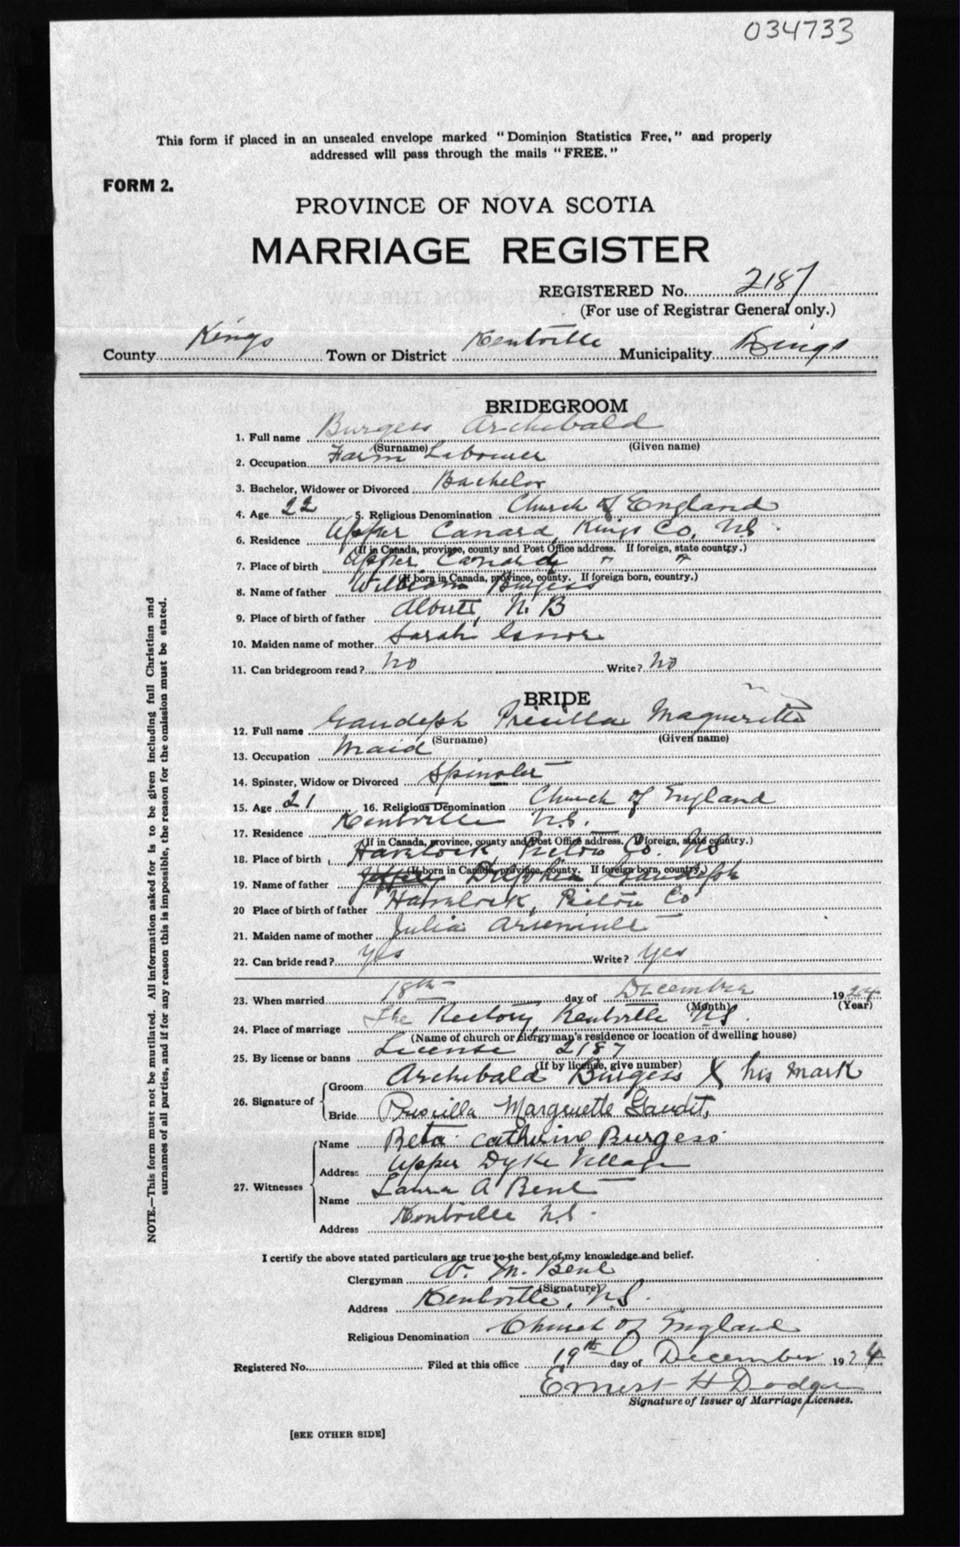 034733
This form if placed in an unsealed envelope marked "Dominion Statistics Free," and properly
addressed will pass through the mails "FREE."
FORM 2.
PROVINCE OF NOVA SCOTIA
MARRIAGE REGISTER
REGISTERED No. 2187
(For use of Registrar General only.)
County Kings Town or District Kentville Municipality Kings
BRIDEGROOM
1. Full name Burgess Archibald
(Surname) (Given name)
2. Occupation Farm Labourer
3. Bachelor, Widower or Divorced Bachelor
4. Age 22 5. Religious Denomination Church of England
6. Residence Upper Canard, Kings Co, N.S.
(If in Canada, province, county and Post Office address. If foreign, state country.)
7. Place of birth Upper Canard " "
(If born in Canada, province, county. If foreign born, country.)
8. Name of father William Burgess
9. Place of birth of father Albert, N.B
10. Maiden name of mother Sarah
11. Can bridegroom read? No Write? No
BRIDE
12. Full name Gaudeph Pricilla Maguerette
(Surname) (Given name)
13. Occupation Maid
14. Spinster, Widow or Divorced Spinster
15. Age 21 16. Religious Denomination Church of England
17. Residence Kentville N.S.
(If in Canada, province, county and Post Office address. If foreign, state country.)
18. Place of birth Havelock Pictou Co. NS
(If born in Canada, province, county. If foreign born, country.)
19. Name of father Gaudeph
20 Place of birth of father Havelock, Pictou Co
21. Maiden name of mother Julia Arseneault
22. Can bride read? Yes Write? Yes
23. When married 18th day of December 1924
(Month) (Year)
24. Place of marriage The Rectory Kentville N.S.
(Name of church or clergyman's residence or location of dwelling house)
25. By license or banns License 2187
(If by license, give number)
26. Signature of Groom Archibald Burgess X his mark
Bride Priscilla Marguette Gaudit,
27. Witnesses Name Beta Catherine Burgess
Address Upper Dyke Village
Name Laura A Bent
Address Kentville N.S.
I certify the above stated particulars are true to the best of my knowledge and belief.
Clergyman W. M. Bent
(Signature)
Address Kentville, N.S.
Religious Denomination Church of England
Registered No. Filed at this office 19th day of December 1924
Ernest H Dodge
Signature of Issuer of Marriage Licenses.
[SEE OTHER SIDE]
NOTE.—This form must not be mutilated. All information asked for is to be given including full Christian and
surnames of all parties, and if for any reason this is impossible, the reason for the omission must be stated.